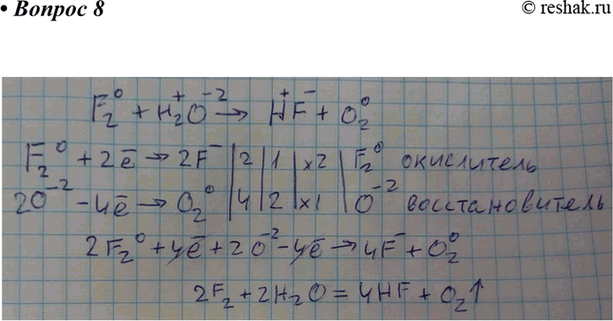 • Вопрос 8
© reshak.ru
F₂⁰ + H₂⁺O⁻² → H⁺F⁻ + O₂⁰
F₂⁰ + 2ē → 2F⁻ | 2 | 1 | ×2 | F₂⁰ окислитель
2O⁻² - 4ē → O₂⁰ | 4 | 2 | ×1 | O⁻² восстановитель
2F₂⁰ + 4ē + 2O⁻² - 4ē → 4F⁻ + O₂⁰
2F₂ + 2H₂O = 4HF + O₂↑